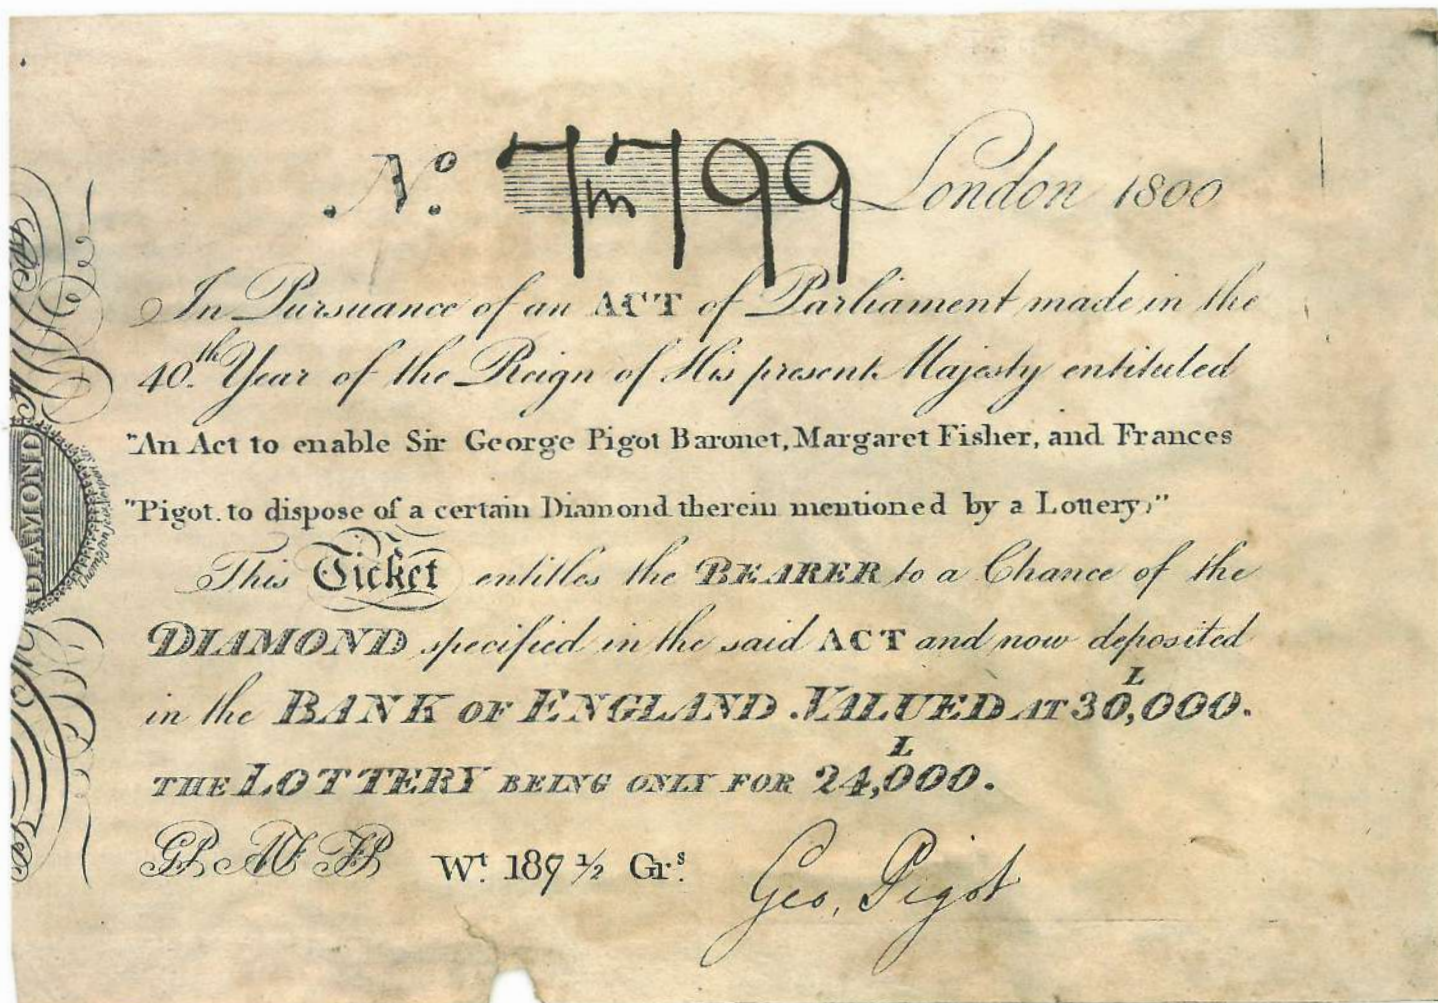 No. 7m799 London 1800
In Pursuance of an ACT of Parliament made in the
40.th Year of the Reign of His present Majesty entituled
"An Act to enable Sir George Pigot Baronet, Margaret Fisher, and Frances
"Pigot. to dispose of a certain Diamond therein mentioned by a Lottery,"
This Ticket entitles the BEARER to a Chance of the
DIAMOND specified in the said ACT and now deposited
in the BANK OF ENGLAND. VALUED AT 30,000.L
THE LOTTERY BEING ONLY FOR 24,000.L
GP MF FP Wt. 187 1/2 Grs. Geo. Pigot
DIAMOND